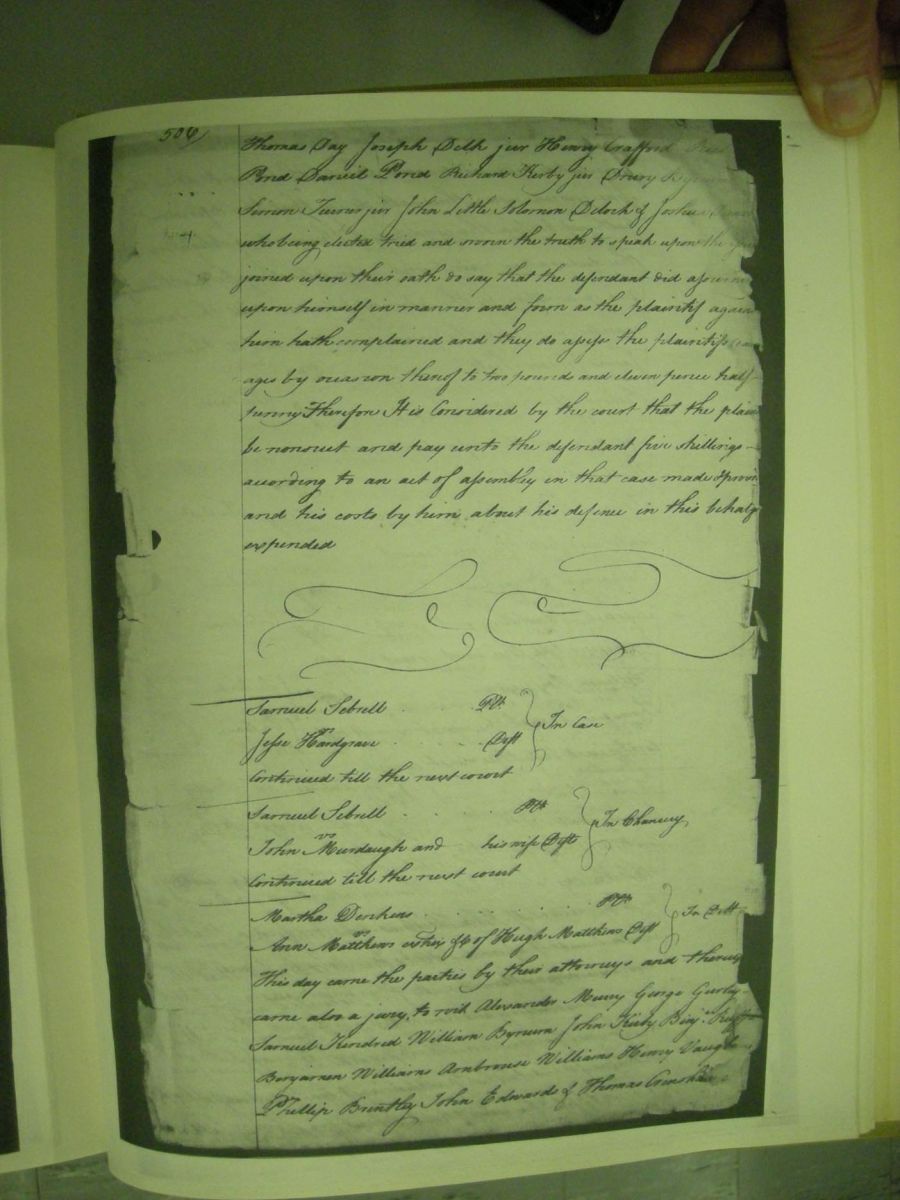 506
Thomas Day Joseph Delk jur Henry Crafford
Pond Daniel Pond Richard Kirby jur Drury
Simon Turner jur John Little Solomon Deloch & Joshua
who being elected tried and sworn the truth to speak upon the
joined upon their oath do say that the defendant did assume
upon himself in manner and form as the plaintif again
him hath complained and they do assess the plaintifs
ages by occasion thereof to two pounds and eleven pence half
penny Therefore It is Considered by the court that the plain
be nonsuet and pay unto the defendant five shillings
according to an act of assembly in that case made & provi
and his costs by him about his defence in this behalf
expended
Samuel Sebrell Plt.
vs In Case
Jesse Hardgrave Deft
Continued till the next court
Samuel Sebrell Plt
vs In Chancery
John Murdaugh and his wife Defts
Continued till the next court
Martha Denkens Plt
vs In Debt
Ann Matthews &c of Hugh Matthews Deft
This day came the parties by their attorneys and thereup
came also a jury, to wit Alexander Murry George Gurley
Samuel Kindred William Bynum John Kirby Benj.
Benjamen Williams Ambrouse Williams Henry Vaughan
Phillip Brantley John Edwards & Thomas